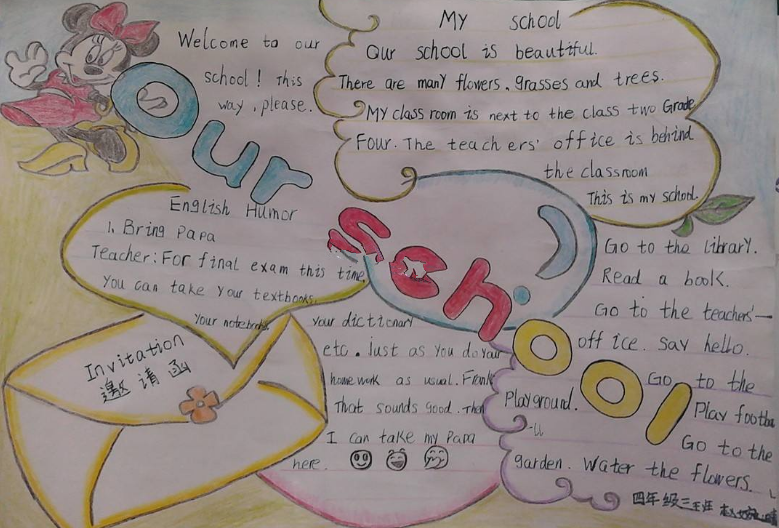 Welcome to our
school! This
way, please.
Our school
My school
Our school is beautiful.
There are many flowers, grasses and trees.
My class room is next to the class two Grade
Four. The teachers' office is behind
the classroom
This is my school.
English Humor
1. Bring Papa
Teacher: For final exam this time,
You can take your textbooks,
your notebooks
your dictionary
etc. Just as you do your
homework as usual. Frank
That sounds Good. Then
I can take my Papa
here.
Invitation
邀请函
Go to the library.
Read a book.
Go to the teachers'—
office. say hello.
Go to the
Playground.
Play footba
Go to the
garden. Water the flowers.
四年级三班